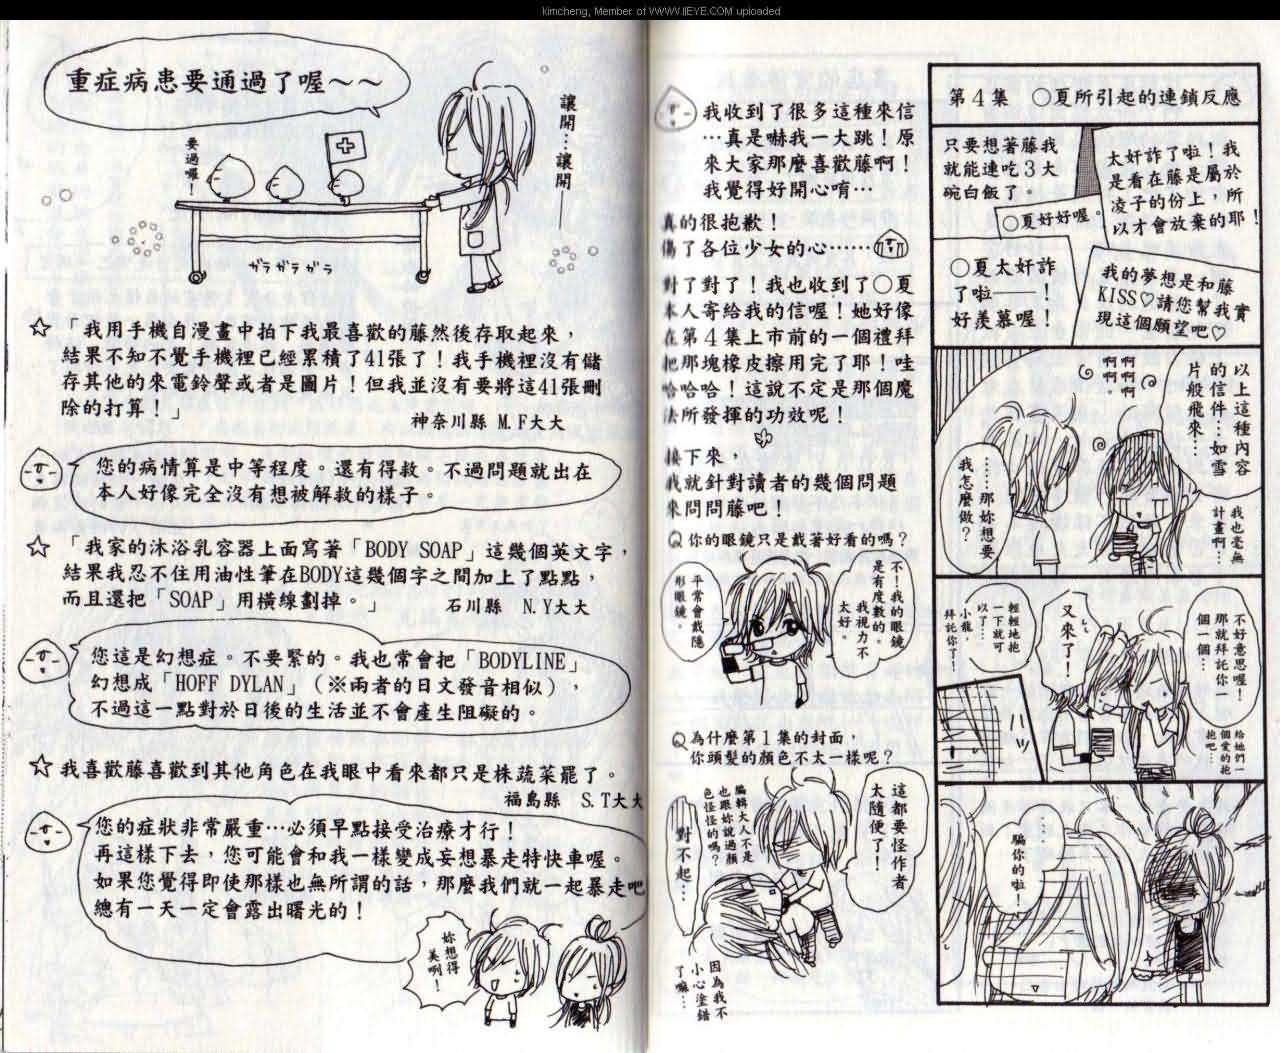 kimcheng, Member of WWW.IIEYE.COM uploaded
第4集　○夏所引起的連鎖反應
只要想著藤我
就能連吃3大
碗白飯了。
太奸詐了啦！我
是看在藤是屬於
凌子的份上，所
以才會放棄的耶！
○夏好好喔。
○夏太奸詐
了啦——！
好羨慕喔！
我的夢想是和藤
KISS♡請您幫我實
現這個願望吧♡
以上這種內容
的信件…如雪
片般飛來…
啊啊啊啊
啊啊。
我也毫無
計畫啊…
……那妳想要
我怎麼做？
不好意思喔！
那就拜託你一
個一個…
給她們一
個愛的抱
抱吧…
又來了！
輕輕地抱
一下就可
以了…
小龍，
拜託你了！
…………
騙你的啦！
我收到了很多這種來信
…真是嚇我一大跳！原
來大家那麼喜歡藤啊！
我覺得好開心唷…
真的很抱歉！
傷了各位少女的心……
對了對了！我也收到了○夏
本人寄給我的信喔！她好像
在第4集上市前的一個禮拜
把那塊橡皮擦用完了耶！哇
哈哈哈！這說不定是那個魔
法所發揮的功效呢！
接下來，
我就針對讀者的幾個問題
來問問藤吧！
Q 你的眼鏡只是戴著好看的嗎？
不！我的眼鏡
是有度數的。
我視力不
太好。
平常會戴隱
形眼鏡。
Q 為什麼第1集的封面，
你頭髮的顏色不太一樣呢？
這都要怪作者
太隨便了！
編輯大人不是
也跟妳說過顏
色怪怪的嗎？
對不起…
因為我不
小心塗錯
了嘛…
重症病患要通過了喔～～
讓開…讓開——
要過囉！
ガラガラガラ
☆「我用手機自漫畫中拍下我最喜歡的藤然後存取起來，
結果不知不覺手機裡已經累積了41張了！我手機裡沒有儲
存其他的來電鈴聲或者是圖片！但我並沒有要將這41張刪
除的打算！」
神奈川縣 M.F大大
您的病情算是中等程度。還有得救。不過問題就出在
本人好像完全沒有想被解救的樣子。
☆「我家的沐浴乳容器上面寫著「BODY SOAP」這幾個英文字，
結果我忍不住用油性筆在BODY這幾個字之間加上了點點，
而且還把「SOAP」用橫線劃掉。」
石川縣　N.Y大大
您這是幻想症。不要緊的。我也常會把「BODYLINE」
幻想成「HOFF DYLAN」（※兩者的日文發音相似），
不過這一點對於日後的生活並不會產生阻礙的。
☆我喜歡藤喜歡到其他角色在我眼中看來都只是株蔬菜罷了。
福島縣　S.T大大
您的症狀非常嚴重…必須早點接受治療才行！
再這樣下去，您可能會和我一樣變成妄想暴走特快車喔。
如果您覺得即使那樣也無所謂的話，那麼我們就一起暴走吧
總有一天一定會露出曙光的！
妳想得
美咧！